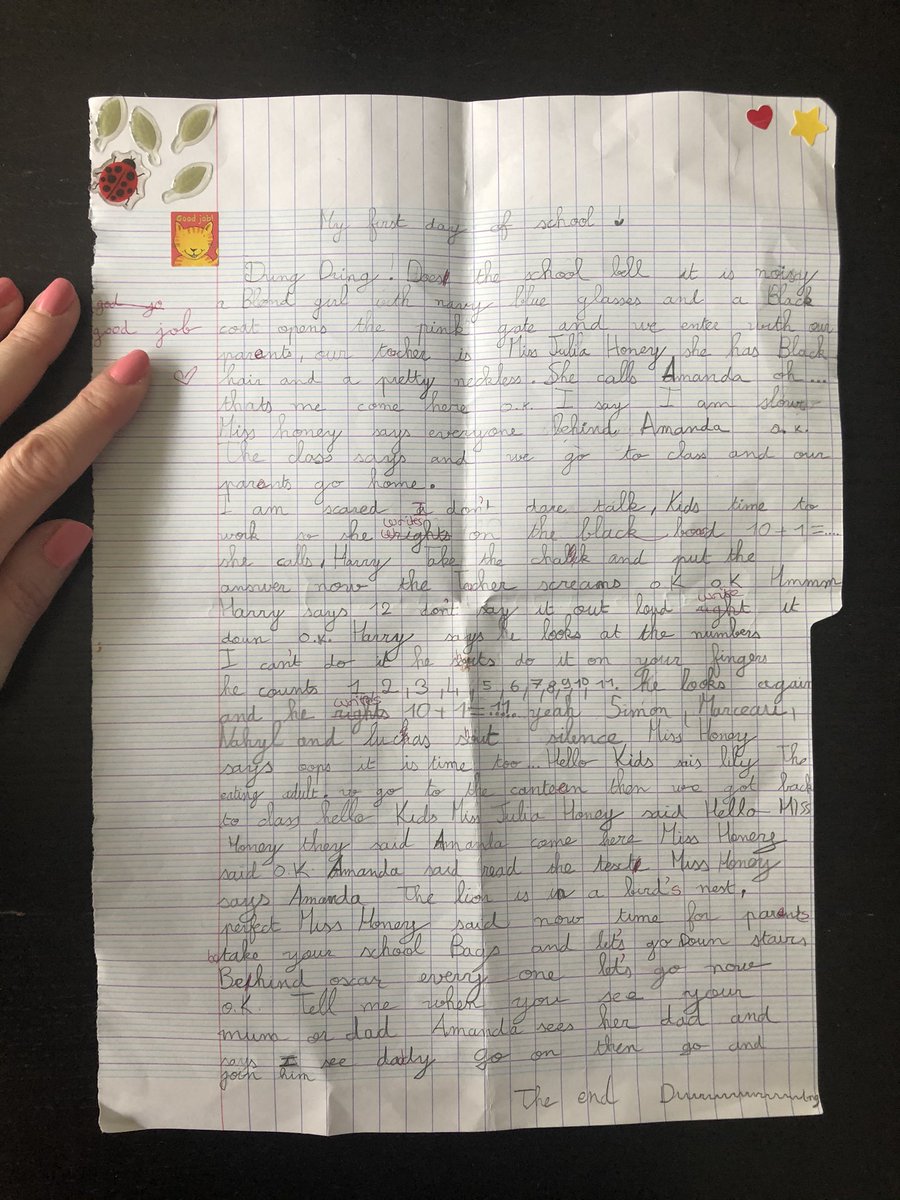 Good job!
My first day of school
Dring Dring! Does the school bell it is noisy
a Blond girl with navy blue glasses and a Black
god jo
good job
coat opens the pink gate and we enter with our
parents, our tocher is Miss Julia Honey she has Black
hair and a pretty neckless. She calls Amanda oh....
thats me come here o.k. I say I am slow
Miss honey says everyone behind Amanda o.k.
the class says and we go to class and our
parents go home.
I am scared I don't dare talk, Kids time to
writes
work so she wrights on the black boad 10+1=....
she calls, Harry Take the chalk and put the
answer now the Techer screams o.K o.K Hmmm
write
Harry says 12 don't say it out loud right it
doun o.k. Harry says he looks at the numbers
I can't do it he do it on your fingers
he counts 1, 2, 3, 4, 5, 6, 7, 8, 9, 10, 11. he looks again
writes
and he rights 10+1=11.... yeah Simon, Marceau,
Nahyl and luchas silence Miss Honey
says oops it is time too... Hello Kids sais lily The
eating adult. we go to the canteen then we got back
to class hello Kids Miss Julia Honey said Hello MIss
Honey they said Amanda come here Miss Honey
said O.K Amanda said read the text Miss Honey
says Amanda The lion is in a bird's nest,
perfect Miss Honey said now time for parents
take your school Bags and let's go Doun stairs
Behind oscar every one let's go now
o.K. Tell me when you see your
mum or dad Amanda sees her dad and
says I see dady go on then go and
join him
The end Drurrrrrrrrrrrring